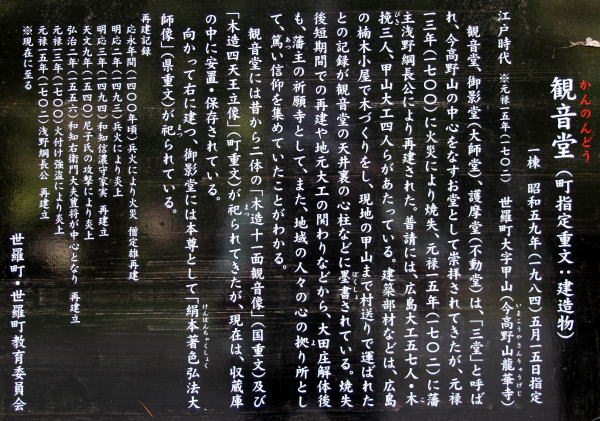 かんのんどう
観音堂（町指定重文：建造物）
一棟　昭和五九年（一九八四）五月一五日指定
江戸時代　※元禄一五年（一七〇二）　世羅町大字甲山（今高野山龍華寺）
いまこうやさんりゅうげじ
観音堂、御影堂（大師堂）、護摩堂（不動堂）は、「三堂」と呼ば
れ、今高野山の中心をなすお堂として崇拝されてきたが、元禄
一三年（一七〇〇）に火災により焼失、元禄一五年（一七〇二）に藩
主浅野綱長公により再建された。普請には、広島大工五七人・木
挽三人、甲山大工四人らがあたっている。建築部材などは、広島
こ
びき
の楠木小屋で木づくりをし、現地の甲山まで村送りで運ばれた
との記録が観音堂の天井裏の心柱などに墨書されている。焼失
ぼくしょ
後短期間での再建や地元大工の関わりなどから、大田庄解体後
も、藩主の祈願寺として、また、地域の人々の心の拠り所とし
よ
て、篤い信仰を集めていたことがわかる。
あつ
観音堂には昔から二体の「木造十一面観音像」（国重文）及び
「木造四天王立像」（町重文）が祀られてきたが、現在は、収蔵庫
まつ
の中に安置・保存されている。
向かって右に建つ、御影堂には本尊として「絹本著色弘法大
けんぽんちゃくしょく
師像」（県重文）が祀られている。
まつ
再建記録
応永年間（一四〇〇年頃）兵火により火災　僧定雄再建
明応二年（一四九三）兵火により炎上
明応三年（一四九四）和知信濃守家来　再建立
天文九年（一五四〇）尼子氏の攻撃により炎上
弘治二年（一五五六）和知右衛門大夫豊将が中心となり　再建立
元禄一三年（一七〇〇）火付け強盗により炎上
元禄一五年（一七〇二）浅野綱長公　再建立
※現在に至る
世羅町・世羅町教育委員会